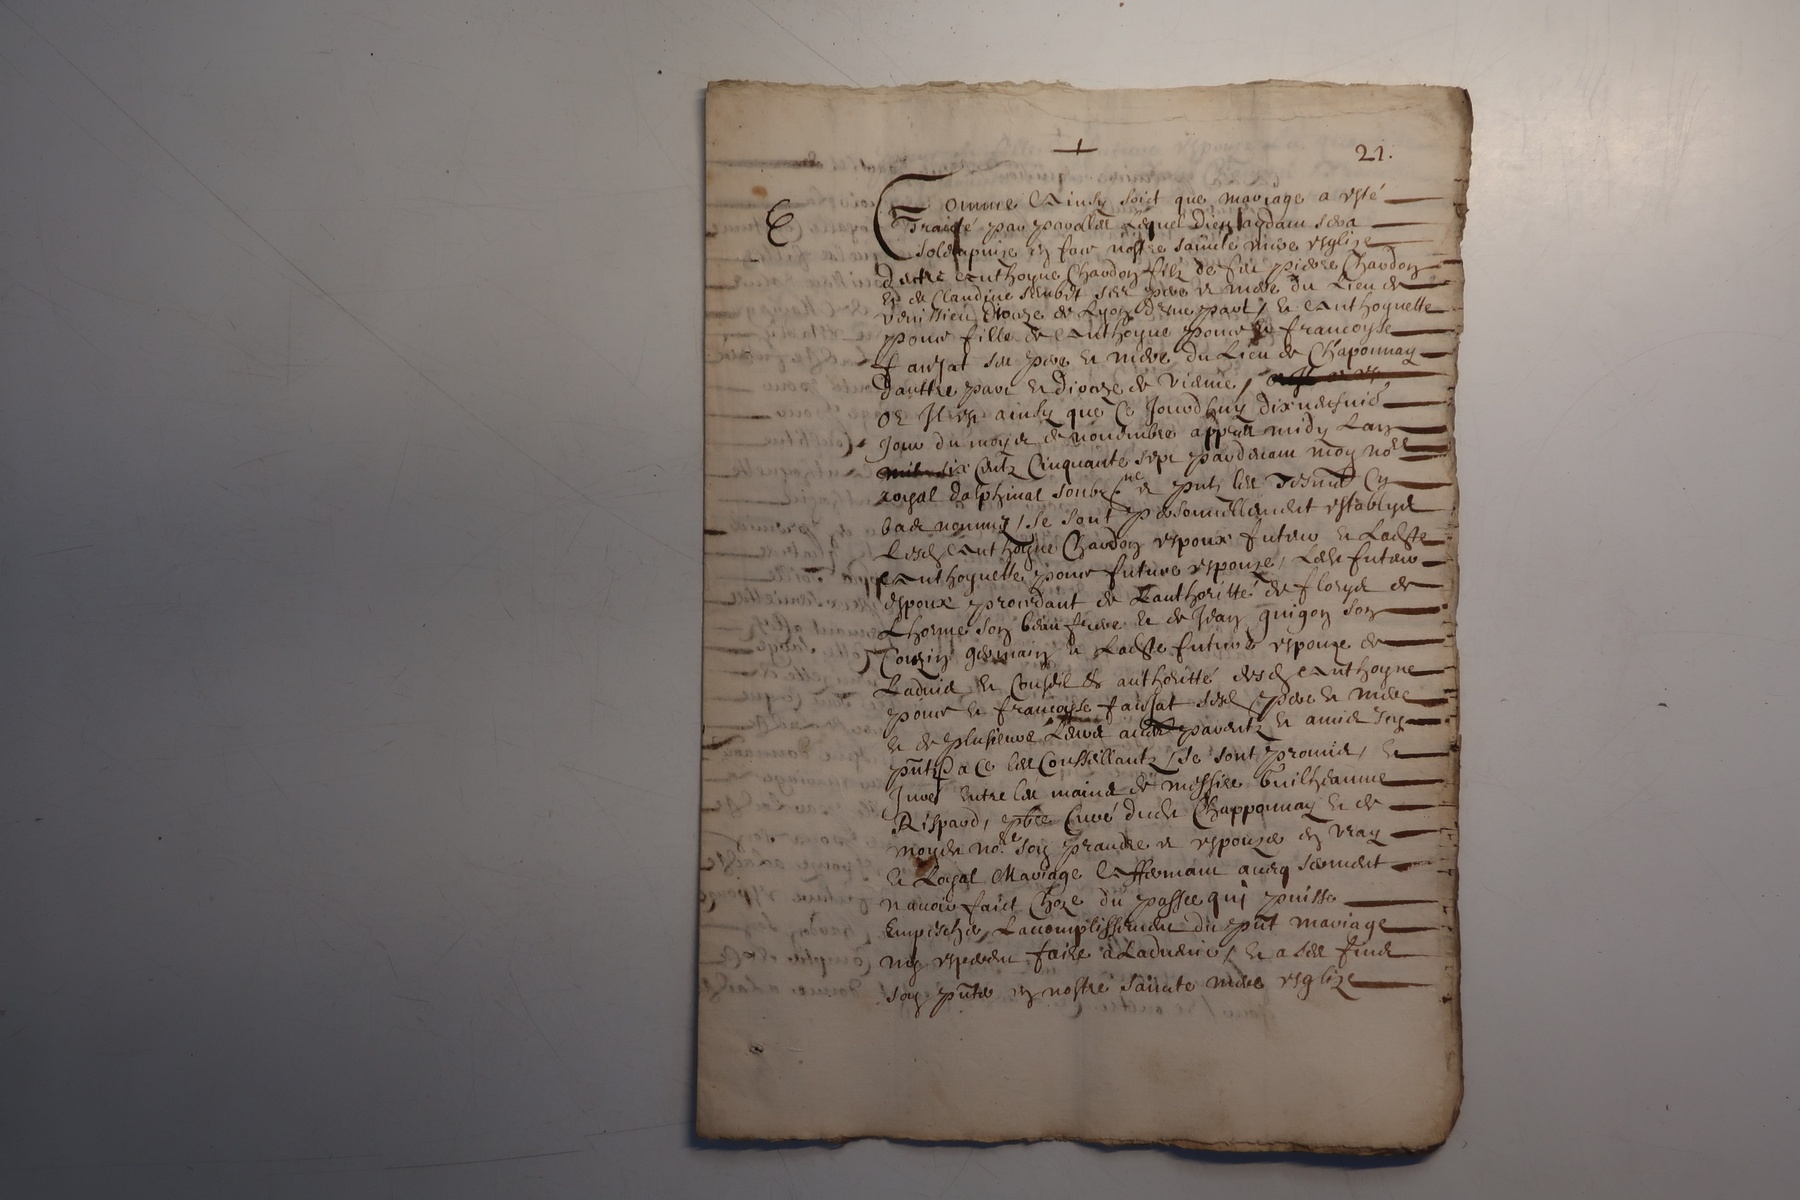 21.
Comme Ainsy soict que mariage a esté
Traicté par parolles Lequel Dieu aydant sera
Solempnize en face nostre saincte mere esglize
Dentre Anthoyne Chardon filz de feu pierre Chardon
et de Claudine ses pere et mere du Lieu de
venissieu dioceze de Lyon dune part / et Anthoynette
pour fille de Anthoyne pour et francoyse
faujat ses pere et mere du Lieu de Chaponnay
Dauttre part et dioceze de vienne /
or Il est ainsy que Ce Jourdhuy dixneufvie
Jour du moys de novembre appres midy Lan
mil six Centz Cinquante sept pardevant moy nore
royal dalphinal soubzne et putz les Tesmt Cy
bas nommez / se sont personnellement establys
Lesd Anthoyne Chardon espoux futeur et Ladte
Anthoynette pour future espouze / Led futeur
espoux procedant de Lauthoritte de florys de
Lhorme son beau frere et de Jean guigon son
Cousin germain et Ladte future espouze de
Ladvis et Conseil et authoritté desd Anthoyne
pour et francoyse faujat sesd pere et mere
et de plusieurs Leurs parentz et amis Icy
putz a Ce les Conseillantz / se sont promis / et
Juré entre les mains de messire Guilheaume
Rispaud / pbre Curé dud Chapponnay et de
moyd nore soy prandre et espouzer en vray
et Loyal Mariage Affermant avecq serment
navoir faict Choze du passee qui puisse
Empescher Lacomplissement du put mariage
ny esperent faire a Ladvenir / et a ses fins
soy puter en nostre saincte mere esglize